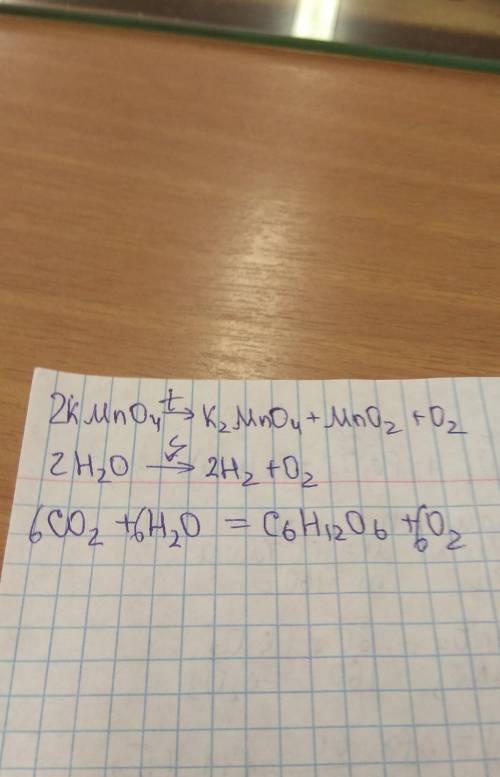 2KMnO₄ t→ K₂MnO₄ + MnO₂ + O₂
2H₂O ↯→ 2H₂ + O₂
6CO₂ + 6H₂O = C₆H₁₂O₆ + 6O₂